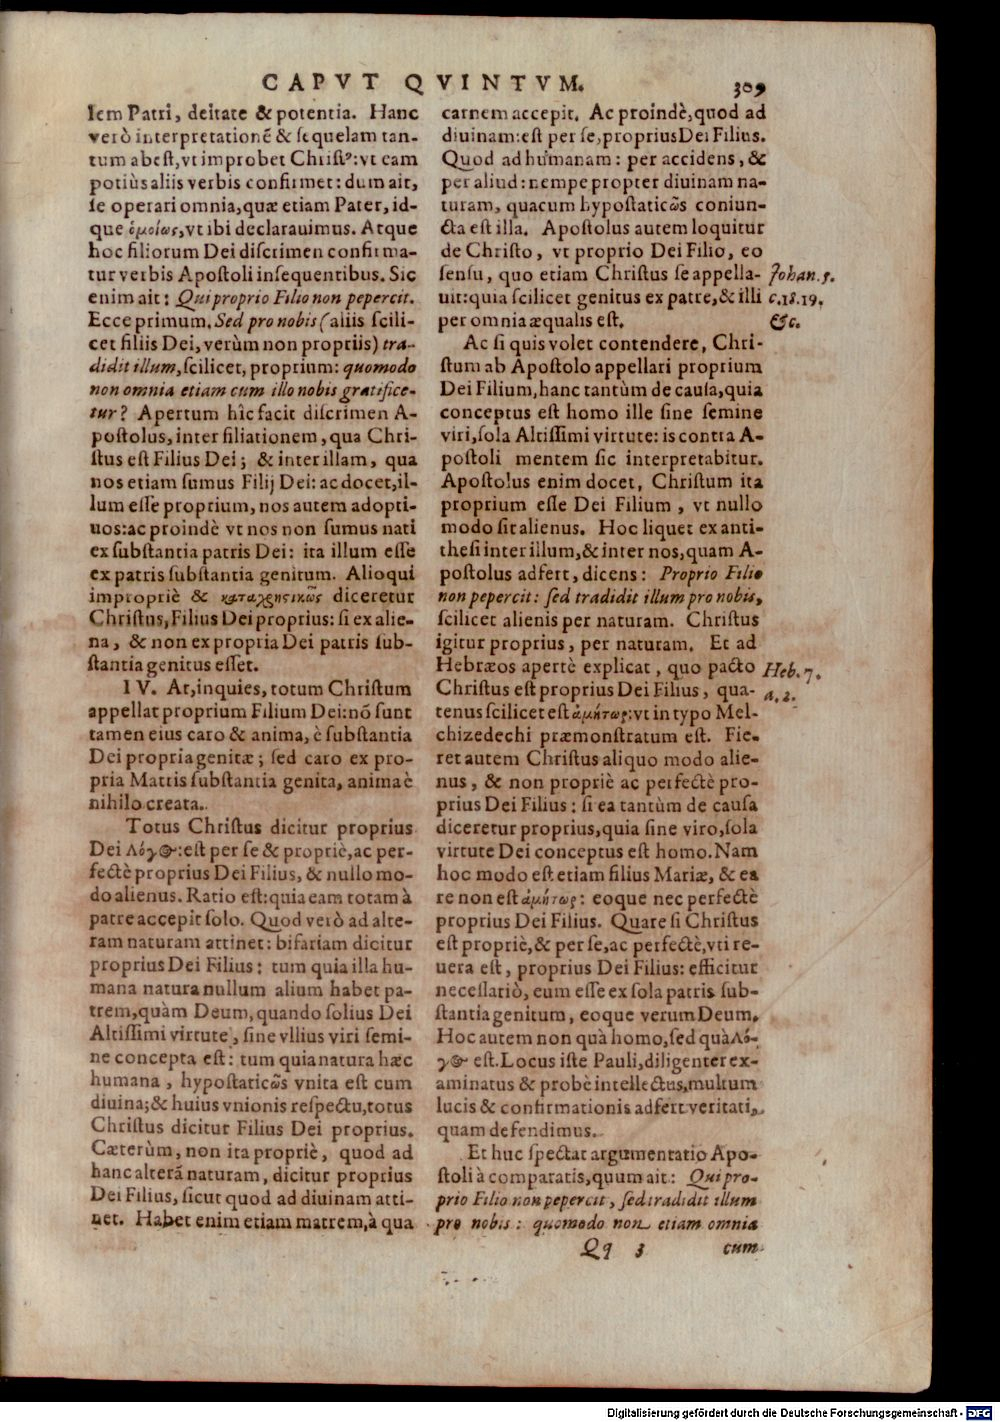 CAPVT QVINTVM. 309
lem Patri, deitate & potentia. Hanc
verò interpretationẽ & sequelam tan-
tum abest, vt improbet Christꝰ: vt eam
potiùs aliis verbis confirmet: dum ait,
se operari omnia, quæ etiam Pater, id-
que ὁμοίως, vt ibi declarauimus. Atque
hoc filiorum Dei discrimen confirma-
tur verbis Apostoli insequentibus. Sic
enim ait: Qui proprio Filio non pepercit.
Ecce primum. Sed pro nobis (aliis scili-
cet filiis Dei, verùm non propriis) tra-
didit illum, scilicet, proprium: quomodo
non omnia etiam cum illo nobis gratifice-
tur? Apertum hîc facit discrimen A-
postolus, inter filiationem, qua Chri-
stus est Filius Dei; & inter illam, qua
nos etiam sumus Filij Dei: ac docet, il-
lum esse proprium, nos autem adopti-
uos: ac proindè vt nos non sumus nati
ex substantia patris Dei: ita illum esse
ex patris substantia genitum. Alioqui
impropriè & καταχρηστικῶς diceretur
Christus, Filius Dei proprius: si ex alie-
na, & non ex propria Dei patris sub-
stantia genitus esset.
IV. At, inquies, totum Christum
appellat proprium Filium Dei: nõ sunt
tamen eius caro & anima, è substantia
Dei propria genitæ; sed caro ex pro-
pria Matris substantia genita, anima è
nihilo creata.
Totus Christus dicitur proprius
Dei Λόγος: est per se & propriè, ac per-
fectè proprius Dei Filius, & nullo mo-
do alienus. Ratio est: quia eam totam à
patre accepit solo. Quod verò ad alte-
ram naturam attinet: bifariam dicitur
proprius Dei Filius: tum quia illa hu-
mana natura nullum alium habet pa-
trem, quàm Deum, quando solius Dei
Altissimi virtute, sine vllius viri semi-
ne concepta est: tum quia natura hæc
humana, hypostaticῶs vnita est cum
diuina; & huius vnionis respectu, totus
Christus dicitur Filius Dei proprius.
Cæterùm, non ita propriè, quod ad
hanc alterã naturam, dicitur proprius
Dei Filius, sicut quod ad diuinam atti-
net. Habet enim etiam matrem, à qua
carnem accepit. Ac proindè, quod ad
diuinam: est per se, proprius Dei Filius.
Quod ad humanam: per accidens, &
per aliud: nempe propter diuinam na-
turam, quacum hypostaticῶs coniun-
cta est illa. Apostolus autem loquitur
de Christo, vt proprio Dei Filio, eo
sensu, quo etiam Christus se appella-
uit: quia scilicet genitus ex patre, & illi
per omnia æqualis est.
Johan. 5.
c. 18. 19.
&c.
Ac si quis volet contendere, Chri-
stum ab Apostolo appellari proprium
Dei Filium, hanc tantùm de causa, quia
conceptus est homo ille sine semine
viri, sola Altissimi virtute: is contra A-
postoli mentem sic interpretabitur.
Apostolus enim docet, Christum ita
proprium esse Dei Filium, vt nullo
modo sit alienus. Hoc liquet ex anti-
thesi inter illum, & inter nos, quam A-
postolus adfert, dicens: Proprio Filio
non pepercit: sed tradidit illum pro nobis,
scilicet alienis per naturam. Christus
igitur proprius, per naturam. Et ad
Hebræos apertè explicat, quo pacto
Christus est proprius Dei Filius, qua-
tenus scilicet est ἀμήτωρ: vt in typo Mel-
chizedechi præmonstratum est. Fie-
ret autem Christus aliquo modo alie-
nus, & non propriè ac perfectè pro-
prius Dei Filius: si ea tantùm de causa
diceretur proprius, quia sine viro, sola
virtute Dei conceptus est homo. Nam
hoc modo est etiam filius Mariæ, & ea
re non est ἀμήτωρ: eoque nec perfectè
proprius Dei Filius. Quare si Christus
est propriè, & per se, ac perfectè, vti re-
uera est, proprius Dei Filius: efficitur
necessariò, eum esse ex sola patris sub-
stantia genitum, eoque verum Deum.
Hoc autem non quà homo, sed quà Λό-
γος est. Locus iste Pauli, diligenter ex-
aminatus & probè intellectus, multum
lucis & confirmationis adfert veritati,
quam defendimus.
Heb. 7.
a. 2.
Et huc spectat argumentatio Apo-
stoli à comparatis, quum ait: Qui pro-
prio Filio non pepercit, sed tradidit illum
pro nobis: quomodo non etiam omnia
Qq 3 cum
Digitalisierung gefördert durch die Deutsche Forschungsgemeinschaft - DFG